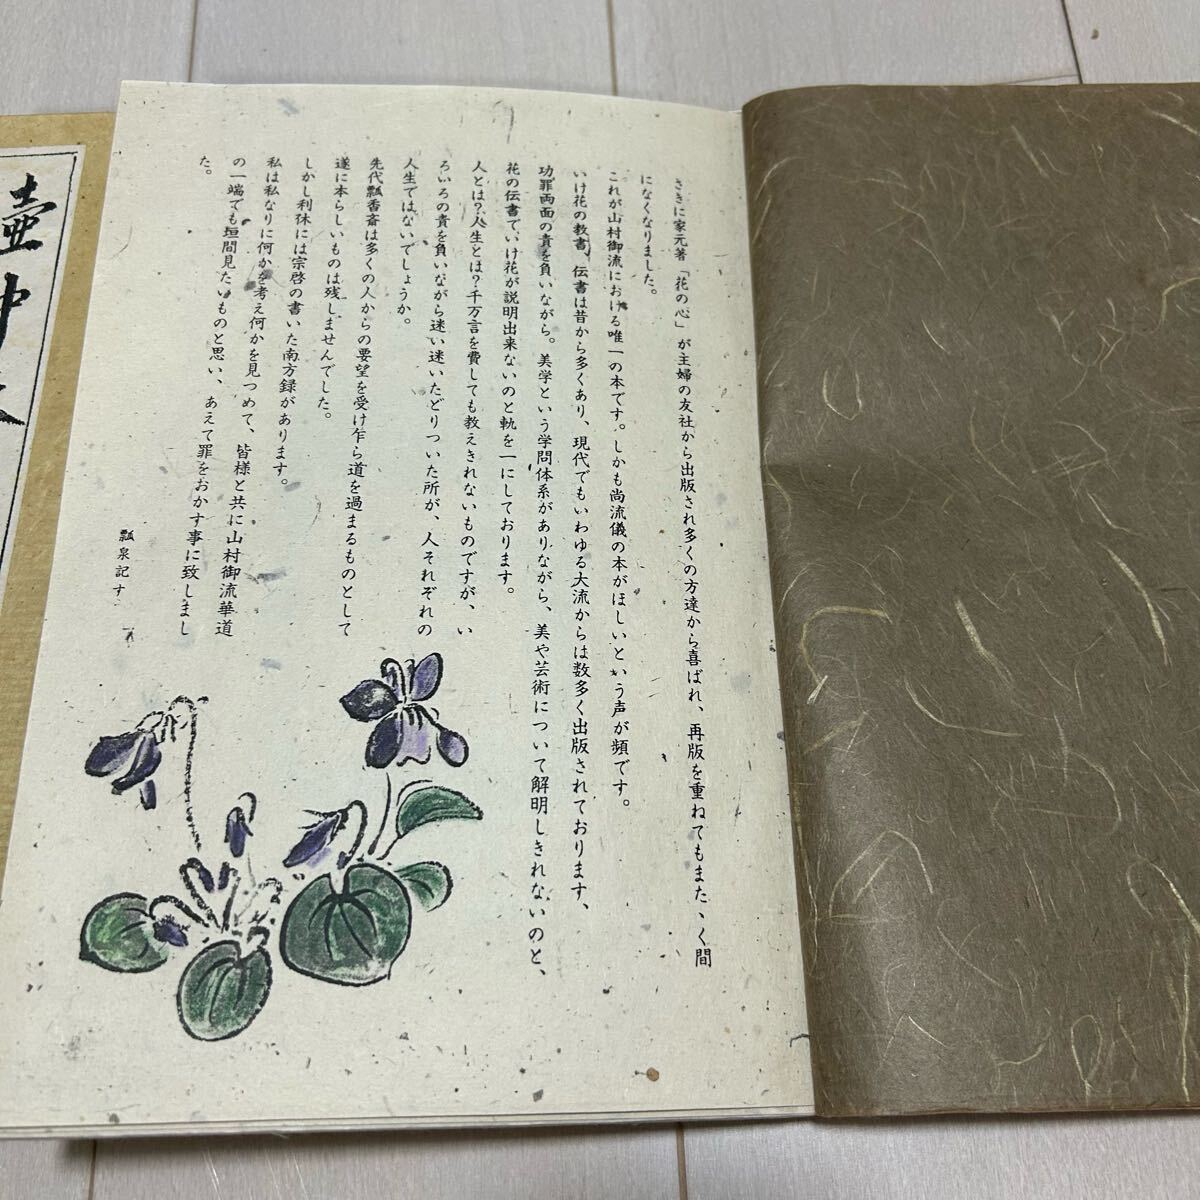 さきに家元著「花の心」が主婦の友社から出版され多くの方達から喜ばれ、再版を重ねてもまた、く間
になくなりました。
これが山村御流における唯一の本です。しかも尚流儀の本がほしいという声が頻です。
いけ花の教書、伝書は昔から多くあり、現代でもいわゆる大流からは数多く出版されております、
功罪両面の責を負いながら。美学という学問体系がありながら、美や芸術について解明しきれないのと、
花の伝書で、いけ花が説明出来ないのと軌を一にしております。
人とは?人生とは?千万言を費しても教えきれないものですが、い
ろいろの責を負いながら迷い迷いたどりついた所が、人それぞれの
人生ではないでしょうか。
先代瓢香斎は多くの人からの要望を受け乍ら道を過まるものとして
遂に本らしいものは残しませんでした。
しかし利休には宗啓の書いた南方録があります。
私は私なりに何かを考え何かを見つめて、皆様と共に山村御流華道
の一端でも垣間見たいものと思い、あえて罪をおかす事に致しまし
た。
瓢泉記す
壷中